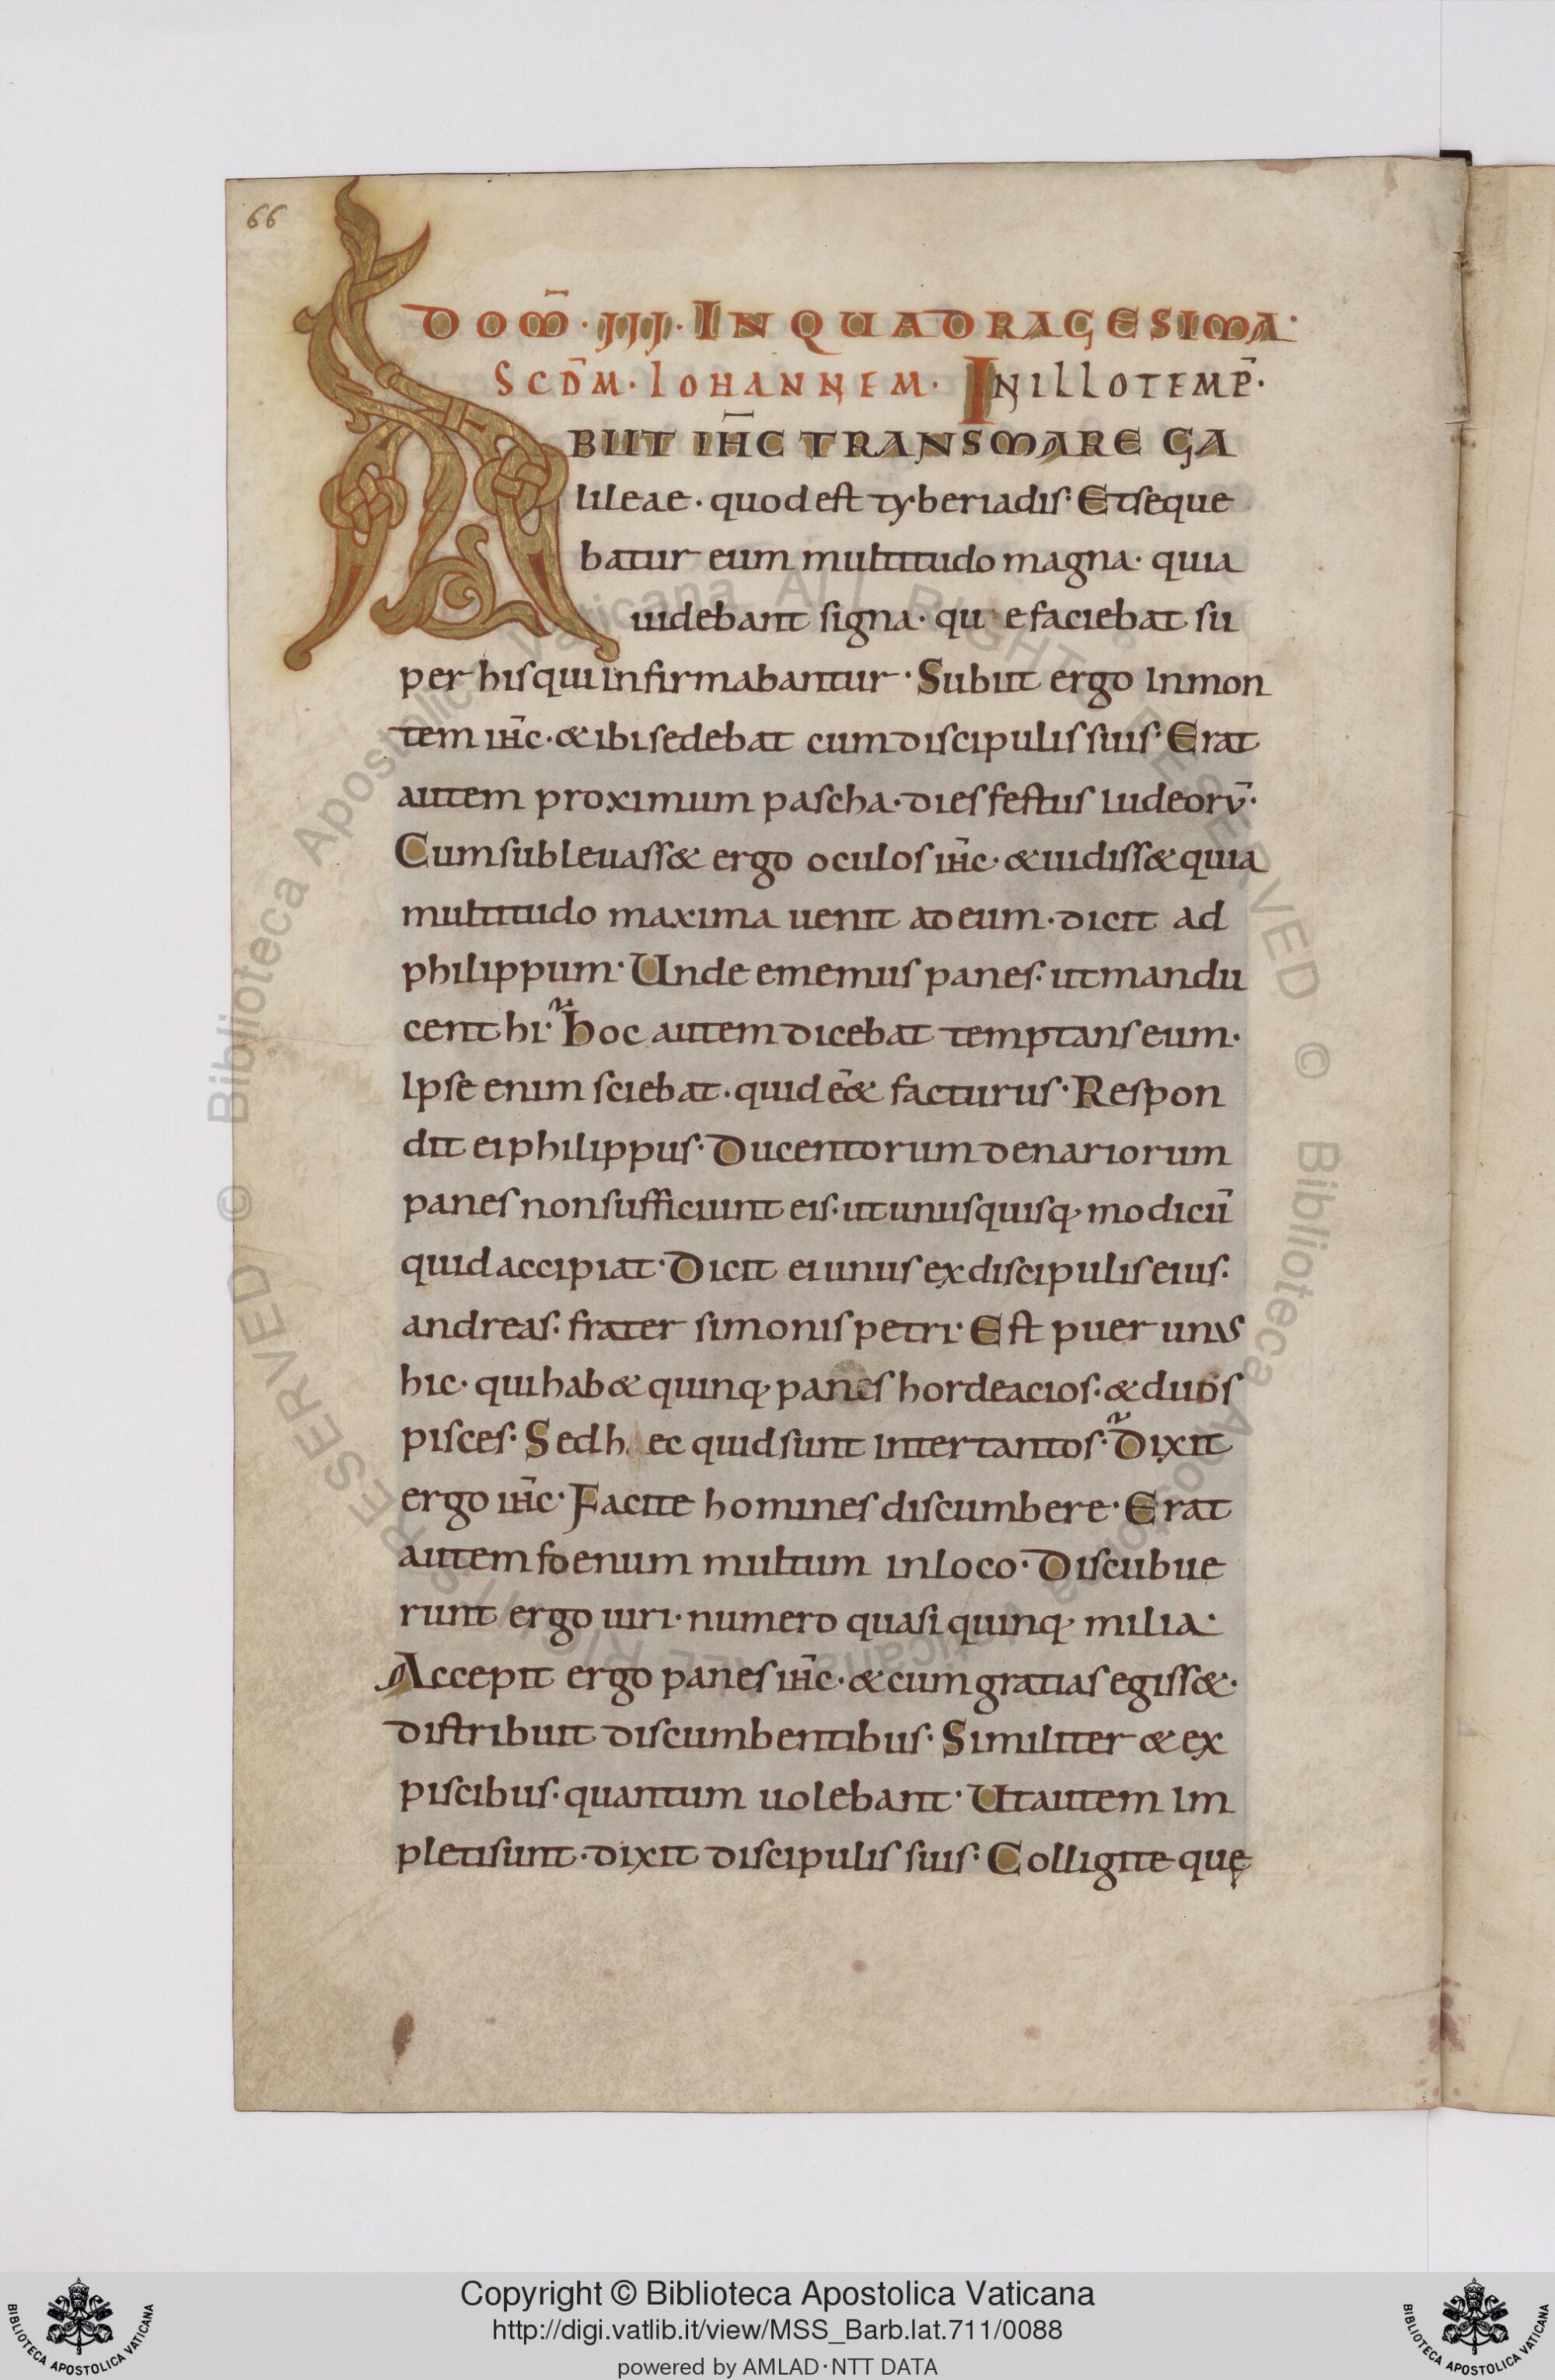 66
DOM̄· III· IN QUADRAGESIMA·
SCD̄M· IOHANNEM· IN ILLO TEMP̄·
A BIIT IH̄C TRANS MARE GA
lileae· quod est tyberiadis· Et seque
batur eum multitudo magna· quia
uidebant signa· qu e faciebat su
per his qui infirmabantur· Subiit ergo in mon
tem ih̄c· & ibi sedebat cum discipulis suis· Erat
autem proximum pascha· dies festus iudeorū·
Cum subleuass& ergo oculos ih̄c· & uidiss& quia
multitudo maxima uenit ad eum· dicit ad
philippum· Unde ememus panes· ut mandu
cent hi· Hoc autem dicebat temptans eum·
Ipse enim sciebat· quid eē& facturus· Respon
dit ei philippus· Ducentorum denariorum
panes non sufficiunt eis· ut unusquisq· modicū
quid accipiat· Dicit ei unus ex discipulis eius·
andreas· frater simonis petri· Est puer unus
hic· qui hab& quinq· panes hordeacios· & duos
pisces· Sed h ec quid sunt inter tantos· Dixit
ergo ih̄c· Facite homines discumbere· Erat
autem foenum multum in loco· Discubue
runt ergo uiri· numero quasi quinq· milia·
Accepit ergo panes ih̄c· & cum gratias egiss&·
distribuit discumbentibus· Similiter & ex
piscibus· quantum uolebant· Ut autem im
pleti sunt· dixit discipulis suis· Colligite quę
© Biblioteca Apostolica Vaticana ALL RIGHTS RESERVED © Biblioteca Apostolica Vaticana ALL RIGHTS RESERVED
Copyright © Biblioteca Apostolica Vaticana
http://digi.vatlib.it/view/MSS_Barb.lat.711/0088
powered by AMLAD·NTT DATA
BIBLIOTECA APOSTOLICA VATICANA
BIBLIOTECA APOSTOLICA VATICANA